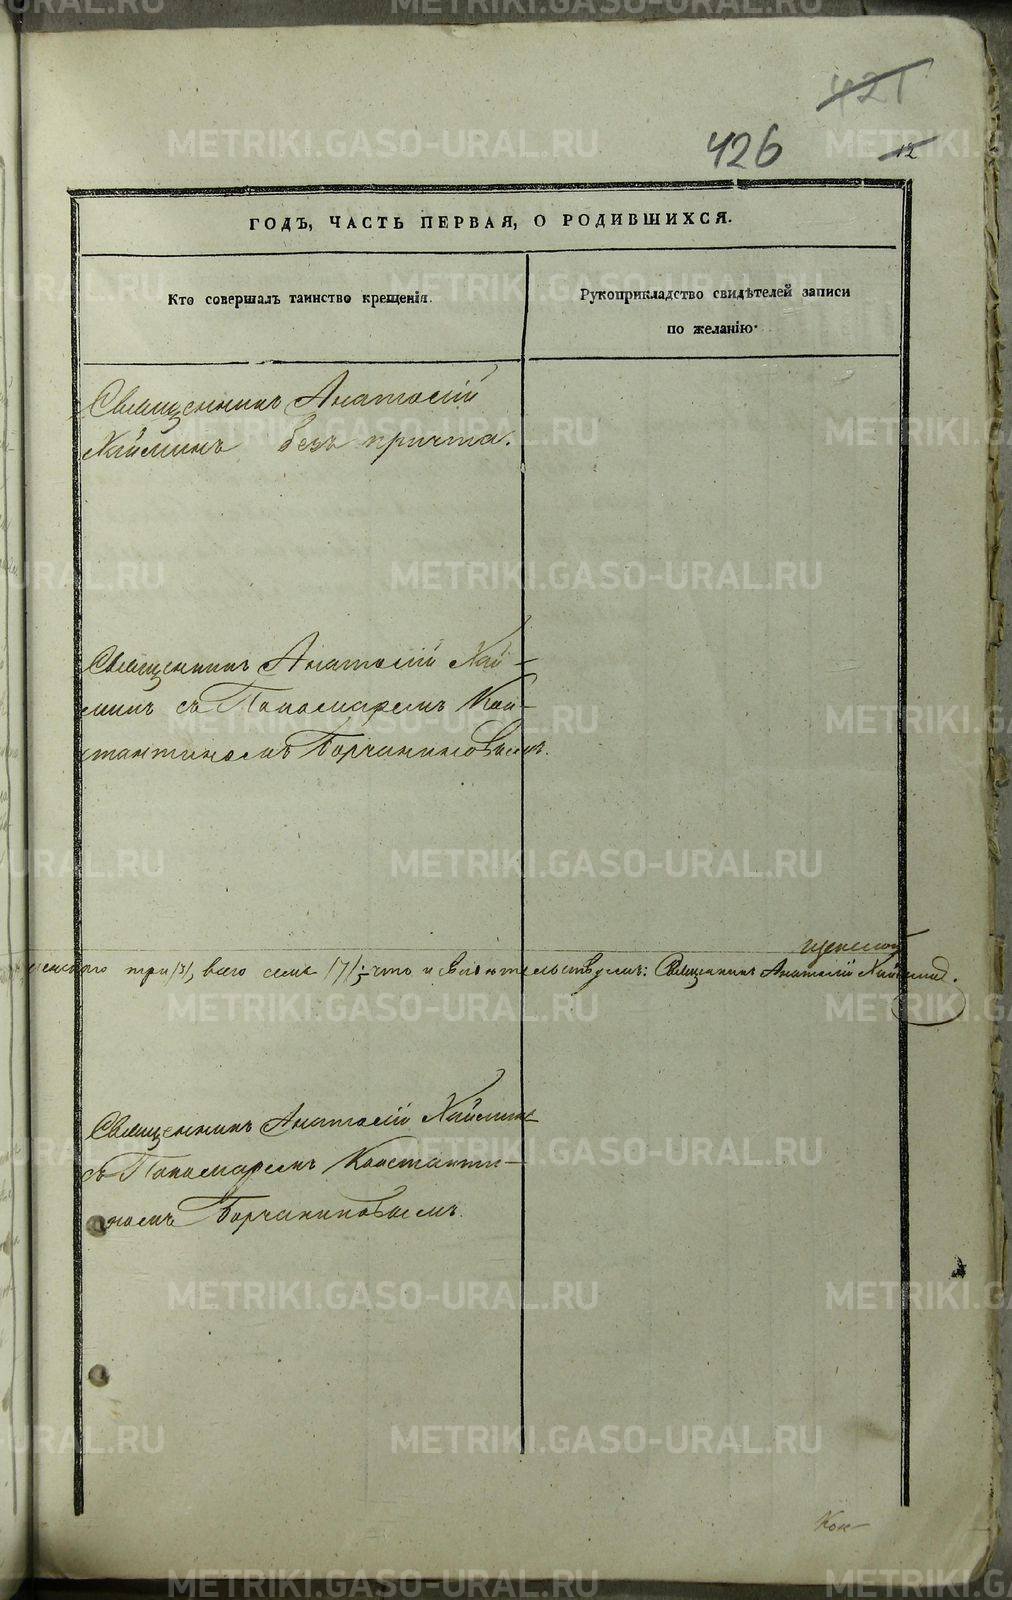 421
426
12
ГОДЪ, ЧАСТЬ ПЕРВАЯ, О РОДИВШИХСЯ.
Кто совершалъ таинство крещенія.
Рукоприкладство свидѣтелей записи
по желанію.
Священникъ Анатолій
Хайминъ безъ причта.
Священникъ Анатолій Хай-
минъ съ Пономаремъ Кон-
стантиномъ Борчаниновымъ.
женскаго три /3/, всего семь /7/; что и свидѣтельствуемъ: Священникъ Анатолій Хайминъ.
Священникъ Анатолій Хайминъ
съ Пономаремъ Константи-
номъ Борчаниновымъ.
METRIKI.GASO-URAL.RU